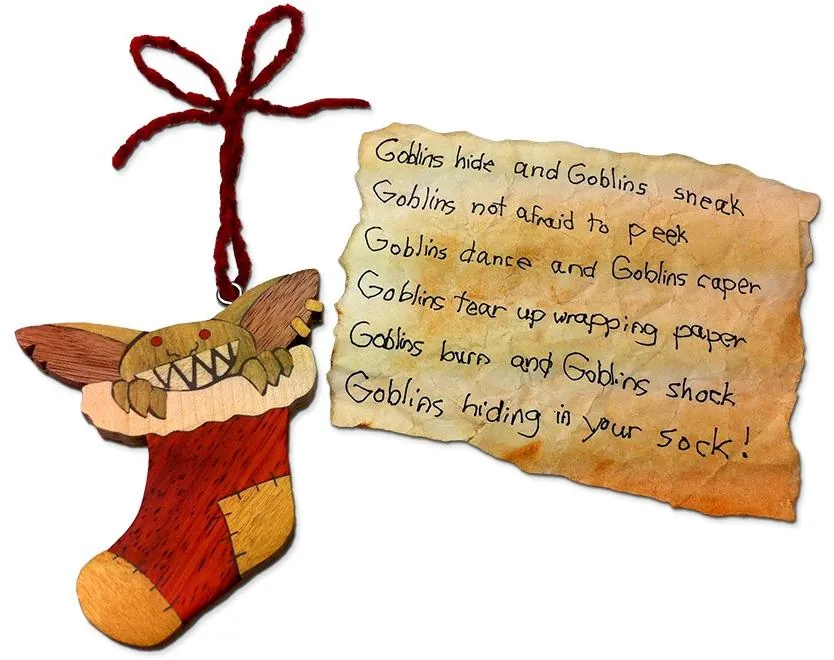 Goblins hide and Goblins sneak
Goblins not afraid to peek
Goblins dance and Goblins caper
Goblins tear up wrapping paper
Goblins burn and Goblins shock
Goblins hiding in your sock!